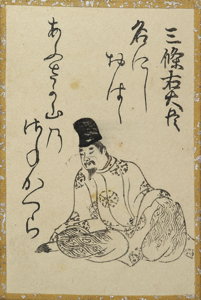 三條右大臣
名にし
おはゝ
あふさか山の
さねかつら